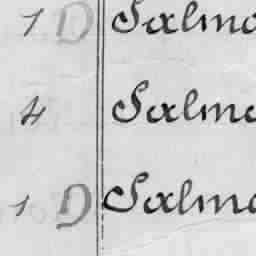 1 D Salmo
4 Salmo
1 D Salmo